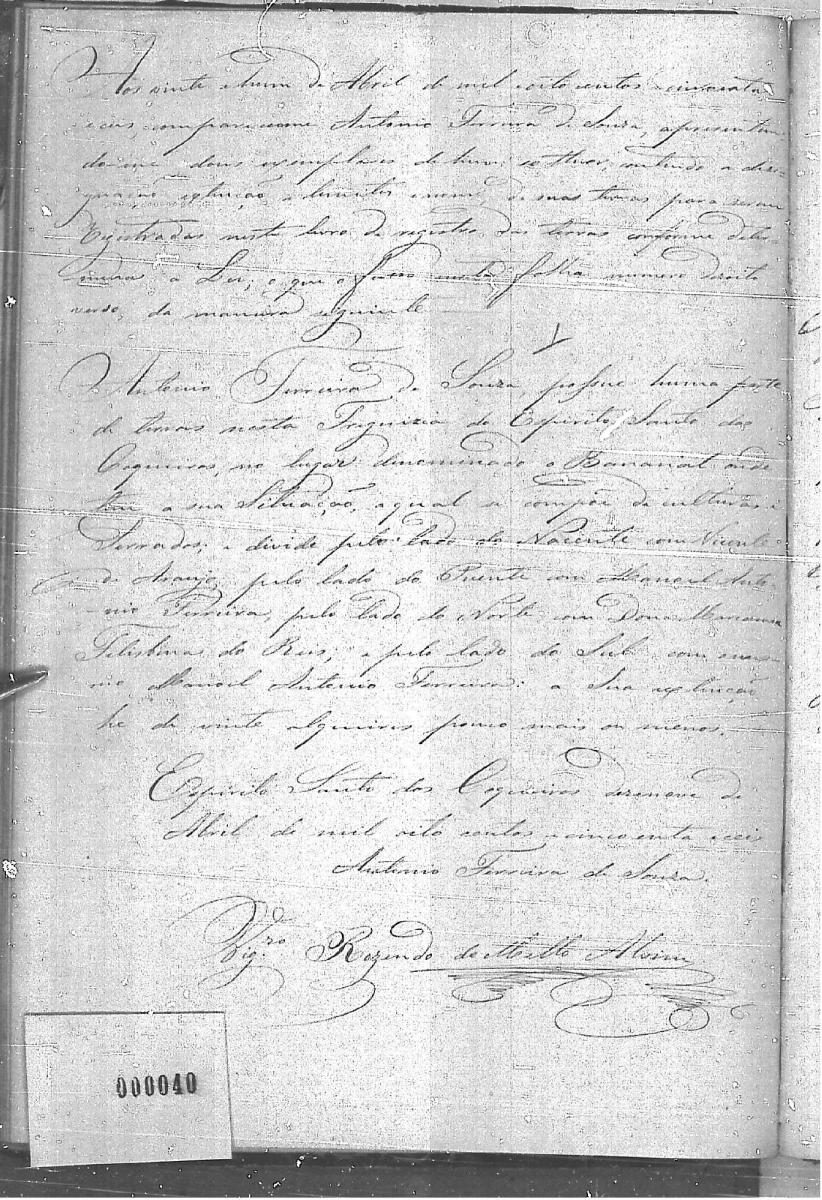 Aos vinte e hum de Abril de mil oito centos cincoenta
e ceis, compareceome Antonio Ferreira de Souza, apresentan
dome dous exemplares de hum so theor, contendo a desi-
gnação extinção e limites e nome de suas terras para serem
Registradas neste livro de registro das terras conforme deter-
mina a Lei, o que o faço nesta folha numero dezoito
verso, da maneira seguinte
Antonio Ferreira de Souza, possue huma parte
de terras nesta Freguizia do Espirito Santo dos
Coqueiros, no lugar denominado o Bananal onde
tem a sua Situação, a qual se compõe de culturas e
Serrados; e divide pelo lado do Nacente com Vicente
de Araujo, pelo lado do Puente com Manoel Anto-
nio Ferreira, pelo lado do Norte com Dona Marianna
Felisbina do Reis; e pelo lado do Sul com o mes-
mo Manoel Antonio Ferreira: a Sua extinção
he de vinte alqueires pouco mais ou menos.
Espirito Santo dos Coqueiros dezenove de
Abril de mil oito centos e cincoenta e ceis
Antonio Ferreira de Souza.
Vigro. Rozendo de Mello
000040